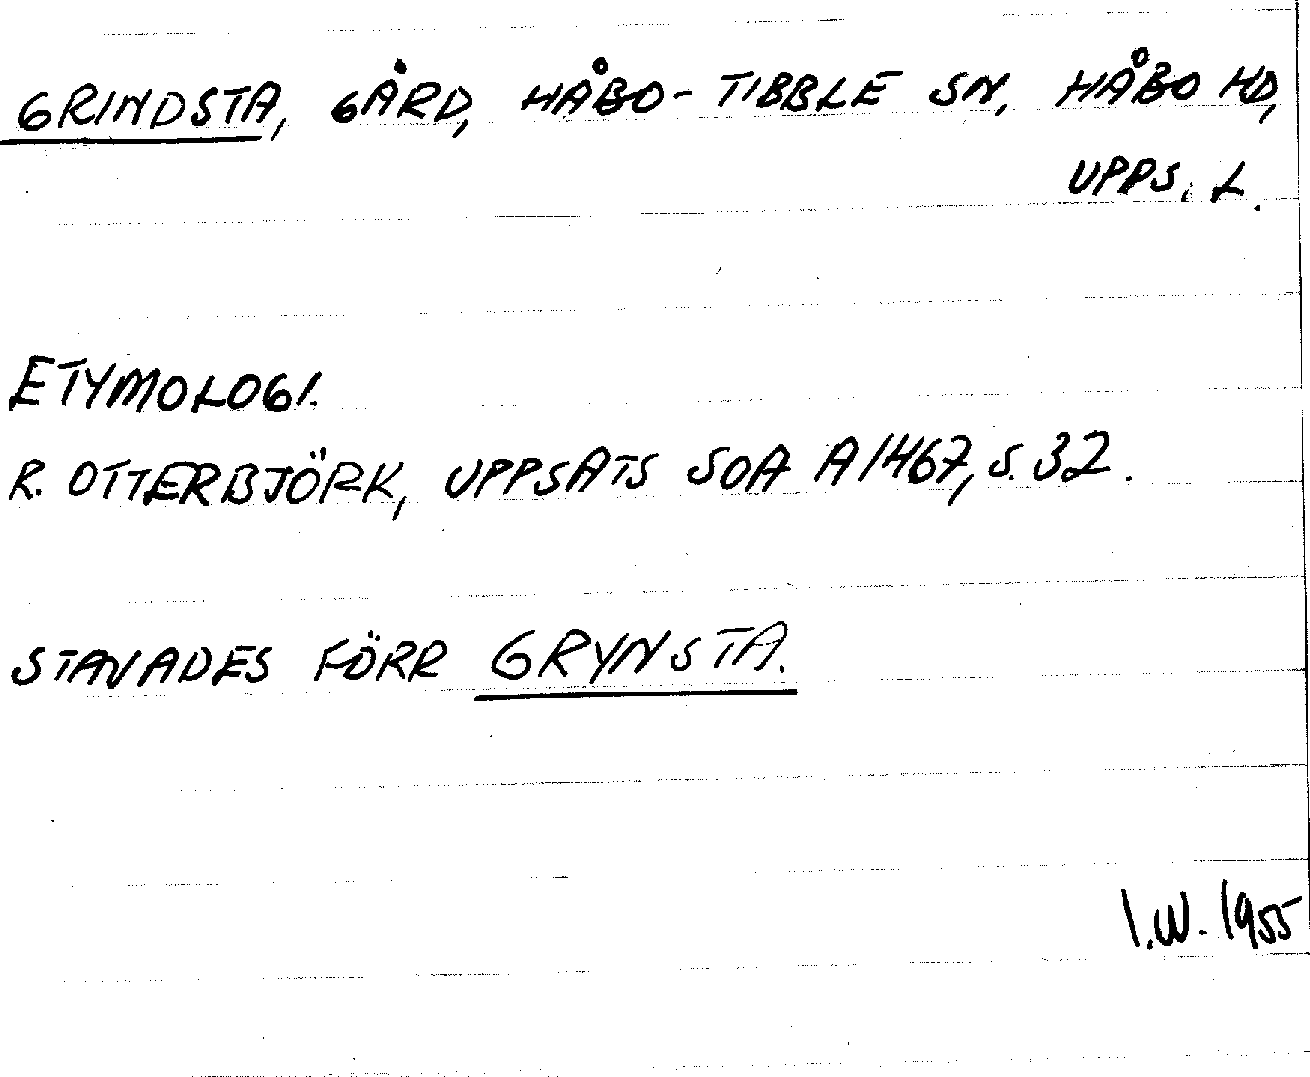 GRINDSTA, GÅRD, HÅBO-TIBBLE SN, HÅBO HD,
UPPS. L.
ETYMOLOGI.
R. OTTERBJÖRK, UPPSATS SOA A1467, S. 32.
STAVADES FÖRR GRYNSTA.
I.W. 1955